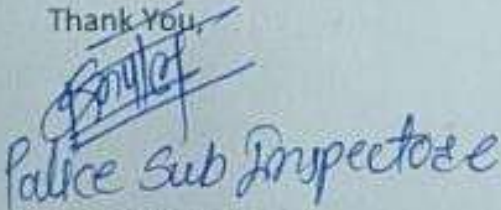 Thank You,
Police Sub Inspectore